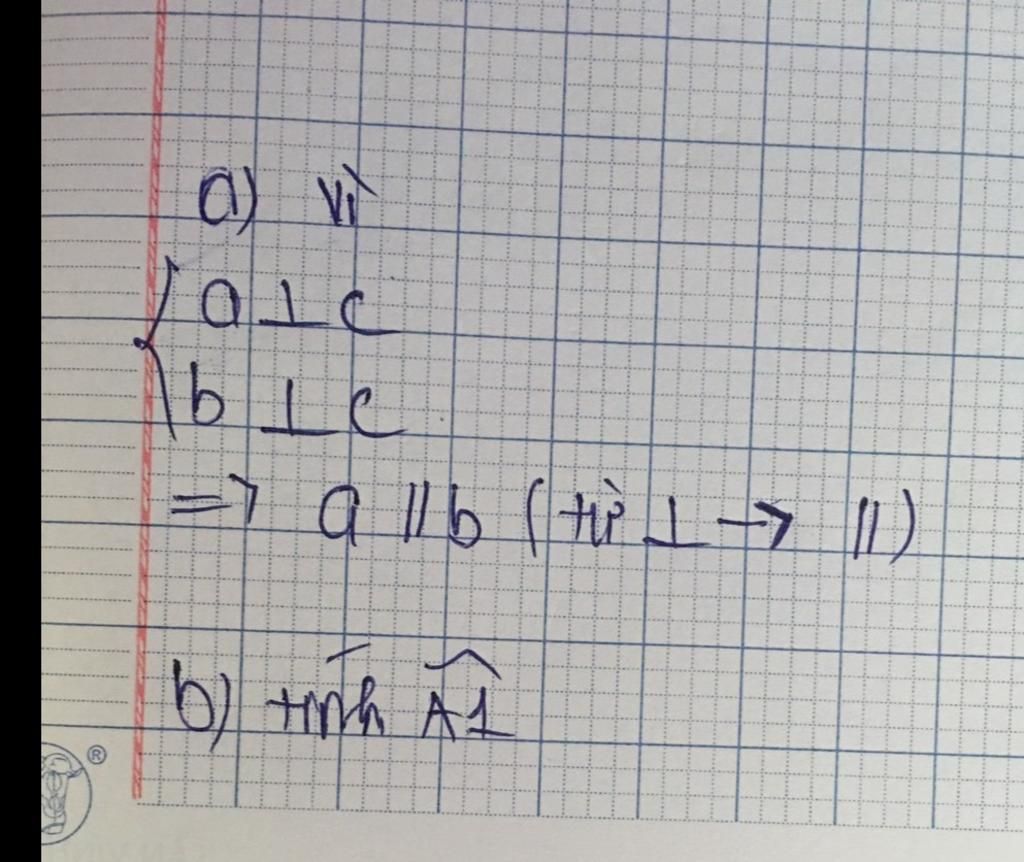 a) Vì
a ⊥ c
b ⊥ c
=> a // b ( từ ⊥ → // )
b) tính Â1
®